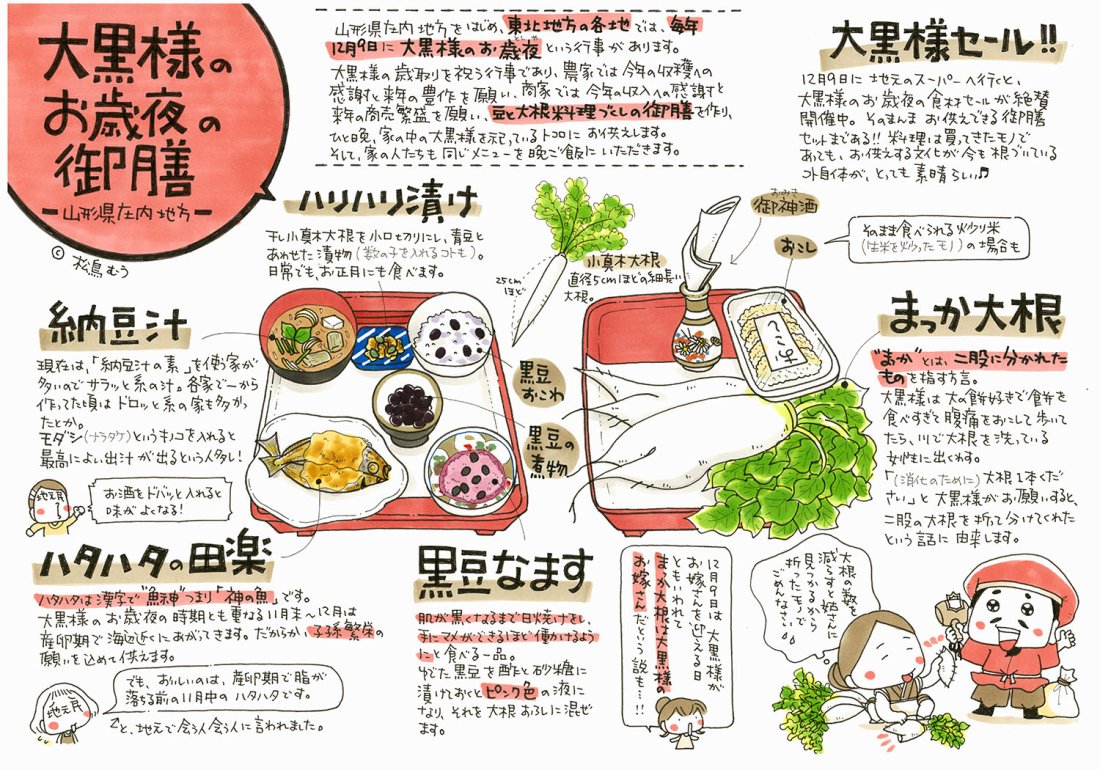 大黒様の
お歳夜の
御膳
ー山形県庄内地方ー
© 松鳥むう
山形県庄内地方をはじめ、東北地方の各地では、毎年
12月9日に大黒様のお歳夜という行事があります。
としや
大黒様の歳取りを祝う行事であり、農家では今年の収穫への
感謝と来年の豊作を願い、商家では今年の収入への感謝と
来年の商売繁盛を願い、豆と大根料理づくしの御膳を作り、
ひと晩、家の中の大黒様を祀っているトコロにお供えします。
そして、家の人たちも同じメニューを晩ご飯にいただきます。
大黒様セール!!
12月9日に地元のスーパーへ行くと、
大黒様のお歳夜の食材セールが絶賛
開催中。そのまんまお供えできる御膳
セットまである!! 料理は買ってきたモノで
あっても、お供えする文化が今も根づいている
コト自体が、とっても素晴らしい♫
ハリハリ漬け
干し小真木大根を小口切りにし、青豆と
あわせた漬物(数の子を入れるコトも)。
日常でも、お正月にも食べます。
小真木大根
直径5cmほどの細長い
大根。
25cm
ほど
おみき
御神酒
おこし
そのまま食べられる炒り米
(生米を炒ったモノ)の場合も
おこし
納豆汁
現在は、「納豆汁の素」を使う家が
多いのでサラッと系の汁。各家で一から
作ってた頃はドロッと系の家も多かっ
たとか。
モダシ(ナラタケ)というキノコを入れると
最高によい出汁が出るというイタダキ!
地元民
お酒をドバッと入れると
味がよくなる!
黒豆
おこわ
黒豆の
煮物
まっか大根
“まっか”とは、二股に分かれた
ものを指す方言。
大黒様は大の餅好きで餅を
食べすぎて腹痛をおこして歩いて
たら、川で大根を洗っている
女性に出くわす。
「(消化のために)大根1本くだ
さい」と大黒様がお願いすると、
二股の大根を折って分けてくれた
という話に由来します。
ハタハタの田楽
ハタハタは漢字で“魚神”つまり“神の魚”です。
大黒様のお歳夜の時期とも重なる11月末〜12月は
産卵期で海辺近くにあがってきます。だからか、子孫繁栄の
願いを込めて供えます。
地元民
でも、おいしいのは、産卵期で脂が
落ちる前の11月中のハタハタです。
と、地元で会う人会う人に言われました。
黒豆なます
肌が黒くなるまで日焼けをし、
手にマメができるほど働かけるよう
にと食べる一品。
ゆでた黒豆を酢と砂糖に
漬けおくとピンク色の液に
なり、それを大根おろしに混ぜ
ます。
12月9日は大黒様が
お嫁さんを迎える日
ともいわれて
まっか大根は大黒様の
お嫁さんだという説も…!!
大根の数を
減らすと姑さんに
見つかるから
折ったモノで
ごめんなさい♪